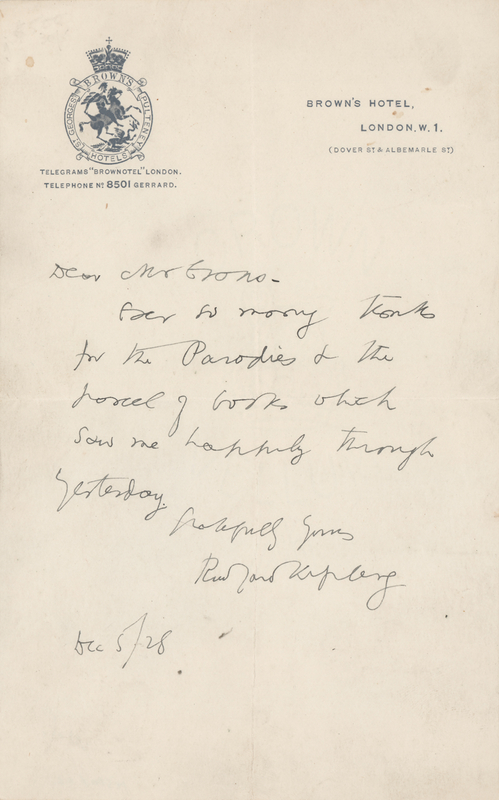 BROWN'S
ST GEORGES
PULTENEY
HOTELS
TELEGRAMS "BROWNOTEL" LONDON.
TELEPHONE No 8501 GERRARD.
BROWN'S HOTEL,
LONDON, W. 1.
(DOVER ST & ALBEMARLE ST)
Dear Mr
Ever so many thanks
for the Parodies & the
parcel of books which
saw me happily through
Yesterday.
Gratefully Yours
Rudyard Kipling
Dec 5/28